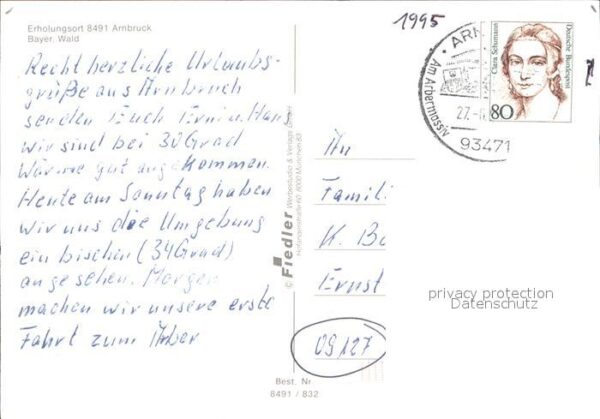 Erholungsort 8491 Arnbruck
Bayer. Wald
Recht herzliche Urlaubs-
grüße aus Arnbruch
senden Euch Erni u. Hans
wir sind bei 30 Grad
Wärme gut angekommen.
Heute am Sonntag haben
wir uns die Umgebung
ein bischen (34 Grad)
angesehen. Morgen
machen wir unsere erste
Fahrt zum Arber
© Fiedler Werbestudio & Verlags GmbH
8000 München 83
Best. Nr
8491 / 832
1995
Am Arbermassiv
27.
93471
Clara Schumann
Deutsche Bundespost
80
An
Famil
K. Ba
Ernst
09127
privacy protection
Datenschutz